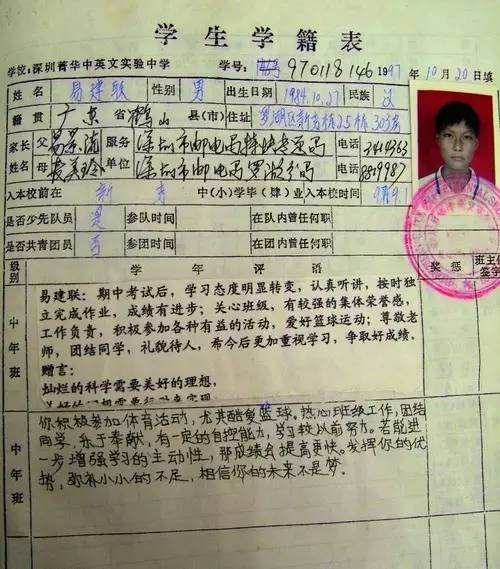 学生学籍表
学校:深圳菁华中英文实验中学 学号: 970118146 1997年10月20日填
姓名 易建联 性别 男 出生日期 1984.10.27 民族 汉
籍贯 广东省鹤山县(市) 住址 罗湖区新秀村25栋303房
家长姓名 父 易景流 服务单位 深圳市邮电局 电话 3414363
母 麦美玲 深圳市邮电局罗湖分局 电话
入本校前在 新秀 中(小)学毕(肆)业 入本校时间 97.9.1
是否少先队员 是 参队时间 在队内曾任何职
是否共青团员 否 参团时间 在团内曾任何职
级别 学年评语 奖惩 班主任签字
中年班
易建联:期中考试后,学习态度明显转变,认真听讲,按时独
立完成作业,成绩有进步;关心班级,有较强的集体荣誉感,
工作负责,积极参加各种有益的活动,爱好篮球运动;尊敬老
师,团结同学,礼貌待人,希今后更加重视学习,争取好成绩。
赠言:
灿烂的科学需要美好的理想,
美好的理想需要行动来实现
中年班
你积极参加体育活动,尤其酷爱篮球。热心班级工作,团结
同学,乐于奉献,有一定的自控能力,学习较以前努力。若能进
一步增强学习的主动性,那成绩会提高更快。发挥你的优
势,弥补小小的不足,相信你的未来不是梦。